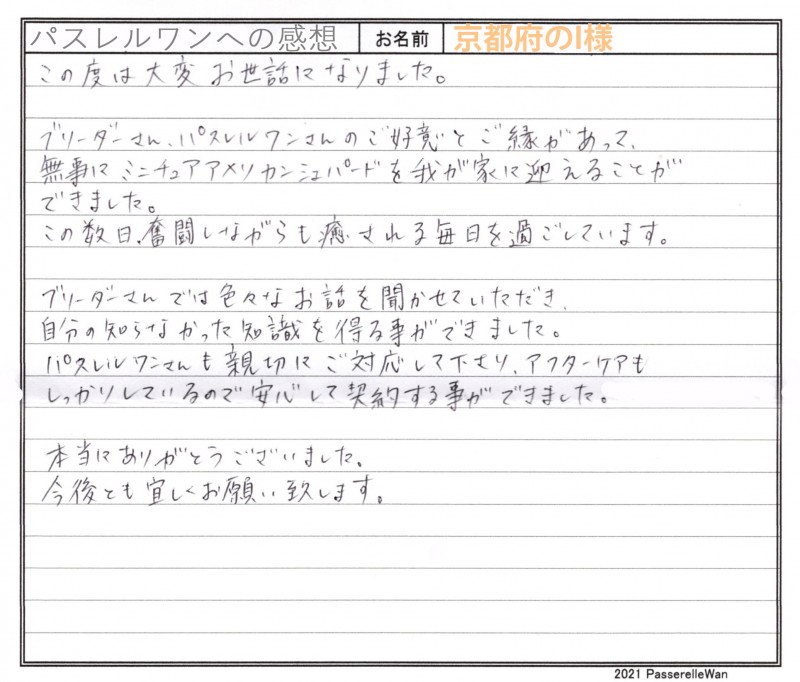 パスレルワンへの感想 お名前 京都府のI様
この度は大変お世話になりました。
ブリーダーさん、パスレルワンさんのご好意とご縁があって、
無事にミニチュアアメリカンシェパードを我が家に迎えることが
できました。
この数日、奮闘しながらも癒される毎日を過ごしています。
ブリーダーさんでは色々なお話を聞かせていただき、
自分の知らなかった知識を得る事ができました。
パスレルワンさんも親切にご対応して下さり、アフターケアも
しっかりしているので安心して契約する事ができました。
本当にありがとうございました。
今後とも宜しくお願い致します。
2021 PasserelleWan